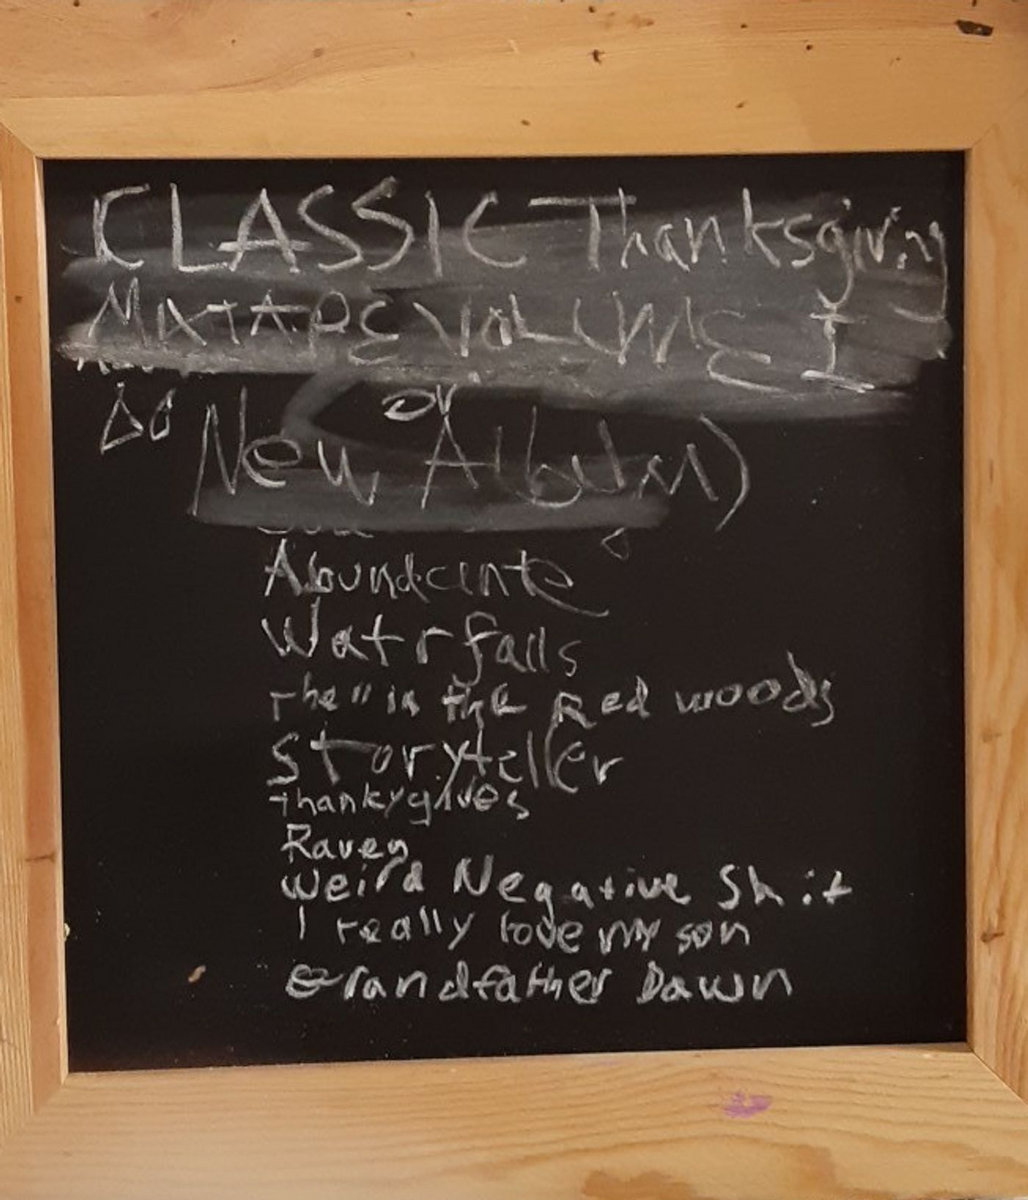 CLASSIC Thanksgiving
MIXTAPE VOLUME I
or
New Album)
Abundante
Watrfalls
The" in the Red woods
Storyteller
Thankygives
Raven
Weird Negative Shit
I really love my son
Grandfather Dawn